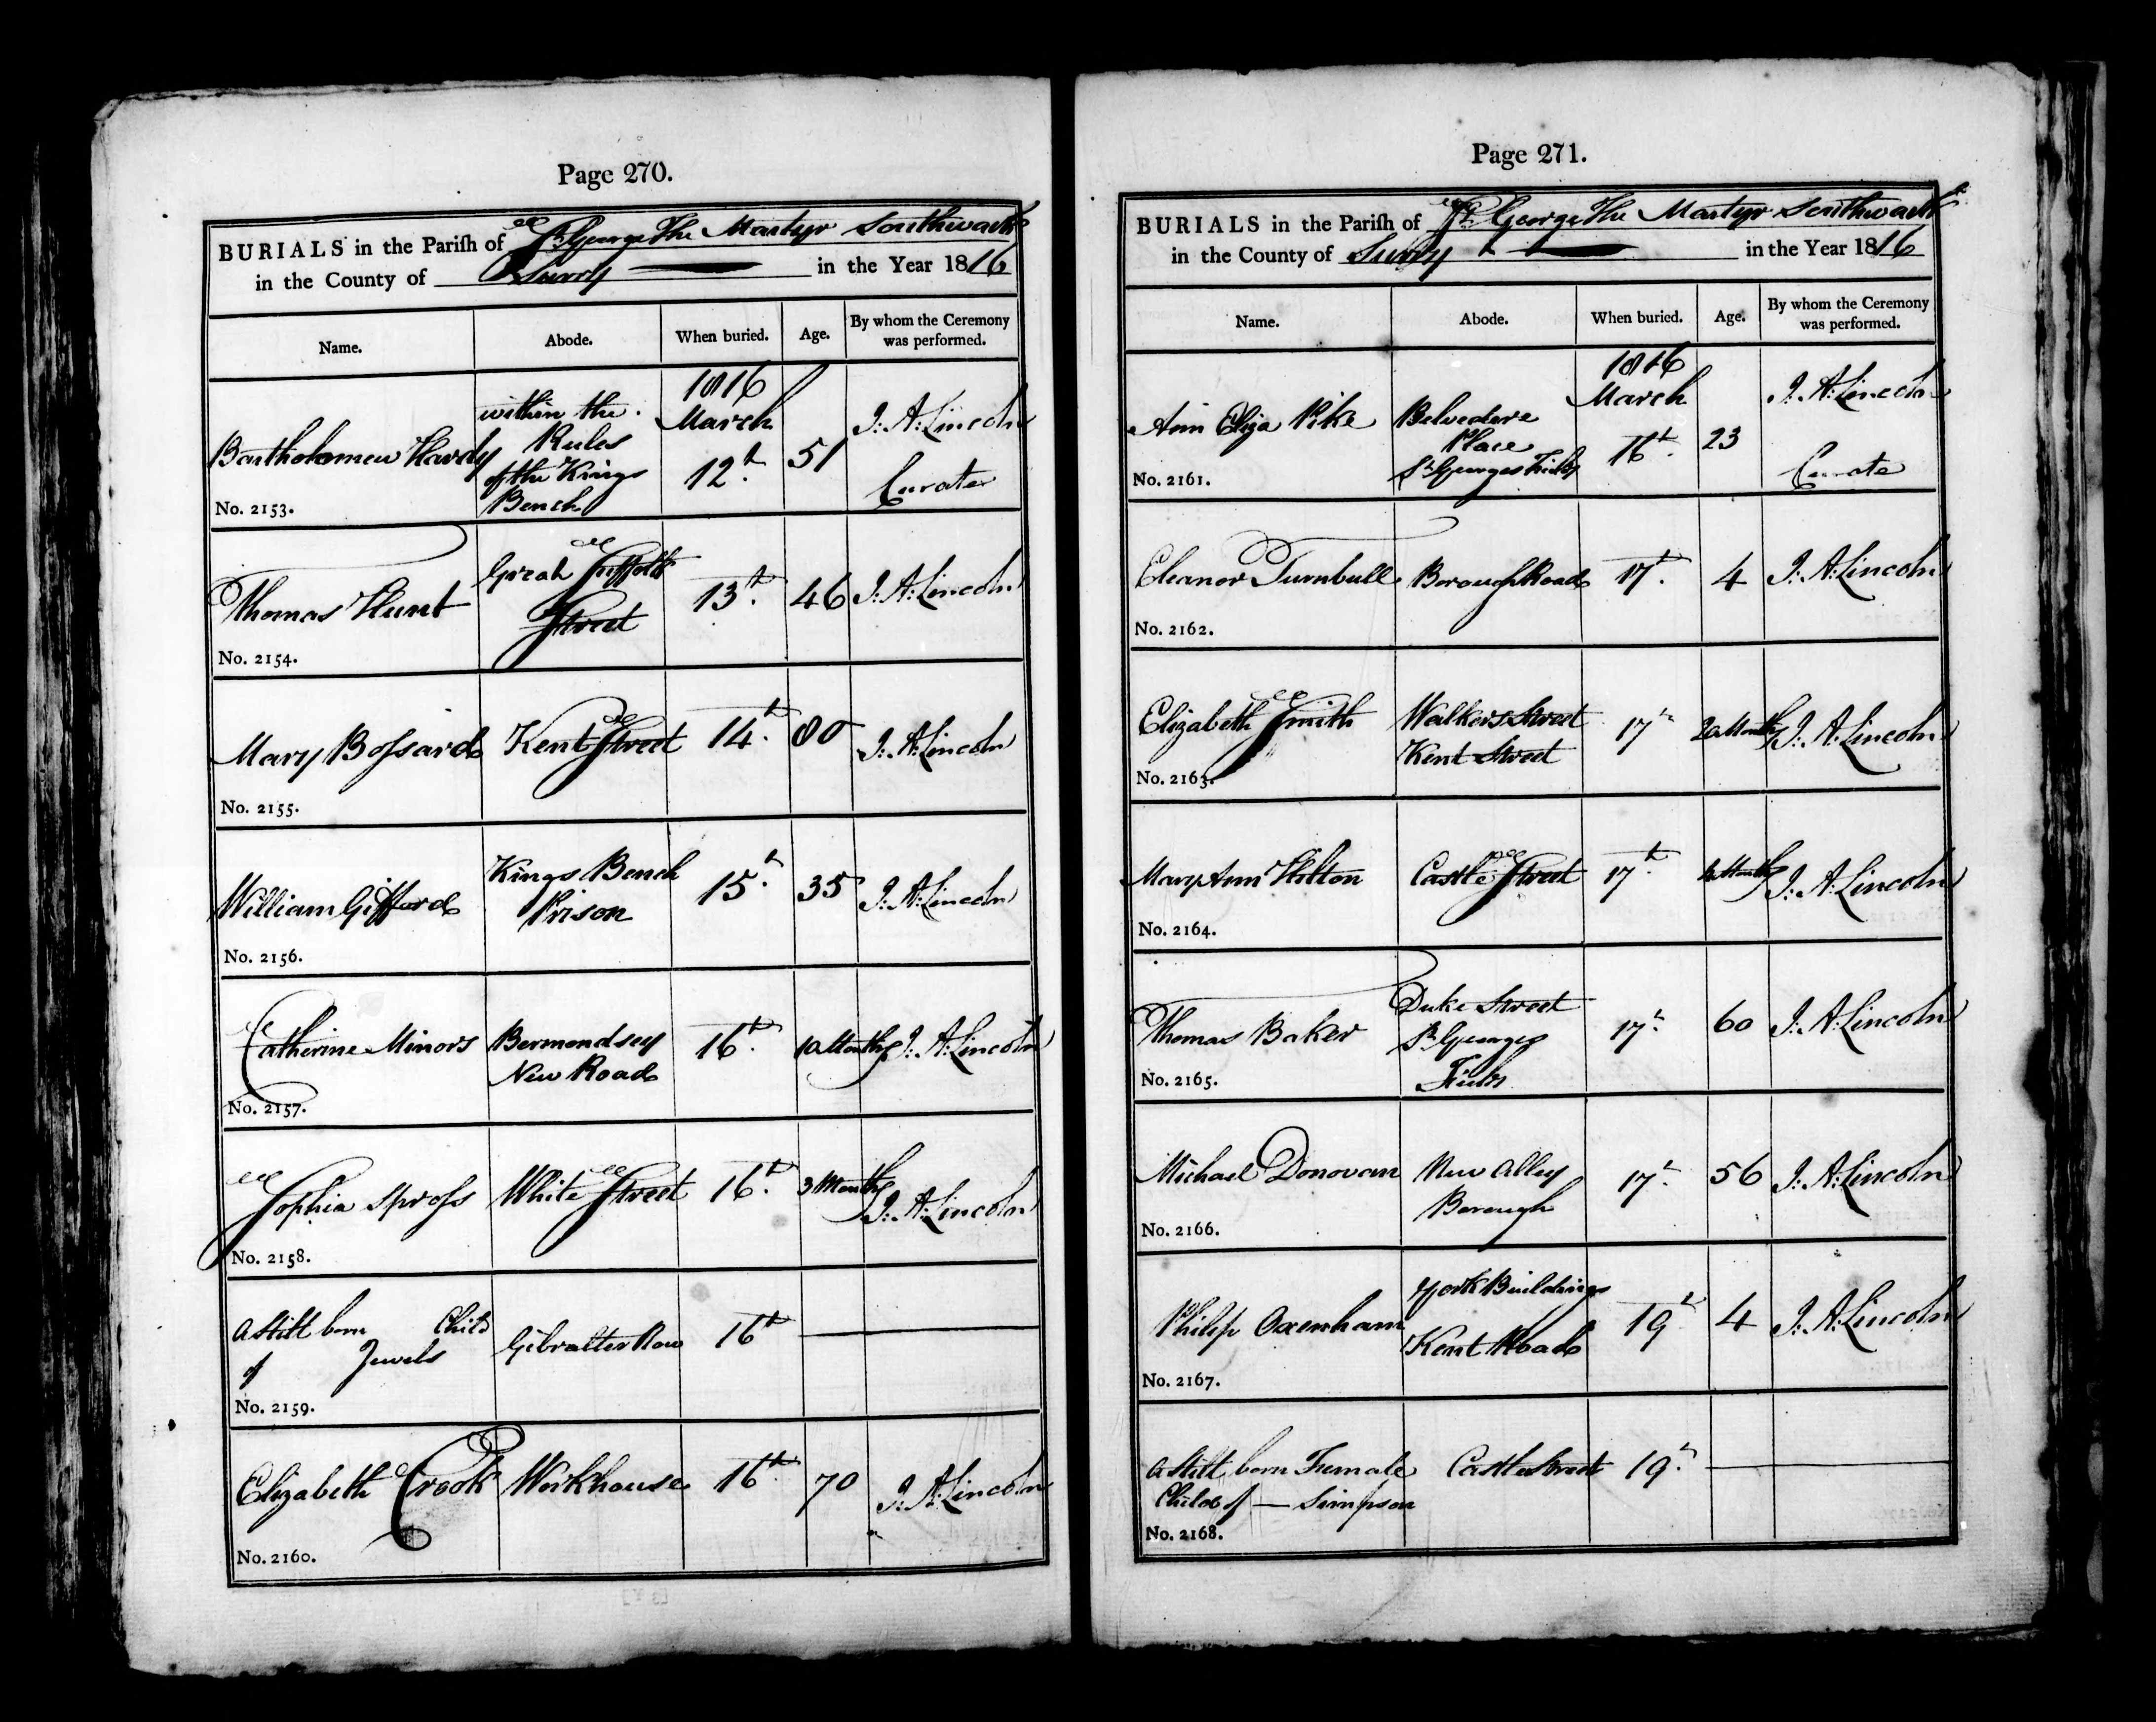 Page 270.
BURIALS in the Parish of St. George The Martyr Southwark
in the County of Surry in the Year 1816
Name. Abode. When buried. Age. By whom the Ceremony was performed.
Bartholomew Hardy within the Rules of the Kings Bench 1816 March 12th. 51 J: A: Lincoln Curate
No. 2153.
Thomas Hunt Great Suffolk Street 13th. 46 J: A: Lincoln
No. 2154.
Mary Bossard Kent Street 14th. 80 J: A: Lincoln
No. 2155.
William Gifford Kings Bench Prison 15th. 35 J: A: Lincoln
No. 2156.
Catherine Minors Bermondsey New Road 16th. 10 Months J: A: Lincoln
No. 2157.
Sophia Spross White Street 16th. 3 Months J: A: Lincoln
No. 2158.
A Still born Child of Jewels Gibralter Row 16th
No. 2159.
Elizabeth Crook Workhouse 16th. 70 J: A: Lincoln
No. 2160.
Page 271.
BURIALS in the Parish of St. George The Martyr Southwark
in the County of Surry in the Year 1816
Name. Abode. When buried. Age. By whom the Ceremony was performed.
Ann Eliza Pike Belvedere Place St. Georges Fields 1816 March 16th. 23 J: A: Lincoln Curate
No. 2161.
Eleanor Turnbull Borough Road 17th. 4 J: A: Lincoln
No. 2162.
Elizabeth Smith Walkers Street Kent Street 17th 20 Months J: A: Lincoln
No. 2163.
Mary Ann Hilton Castle Street 17th. Months J: A: Lincoln
No. 2164.
Thomas Baker Duke Street St. Georges Fields 17th. 60 J: A: Lincoln
No. 2165.
Michael Donovan New Alley Borough 17th. 56 J: A: Lincoln
No. 2166.
Philip Oxenham York Buildings Kent Road 19th 4 J: A: Lincoln
No. 2167.
A Still born Female Child of — Simpson Castle Street 19th.
No. 2168.